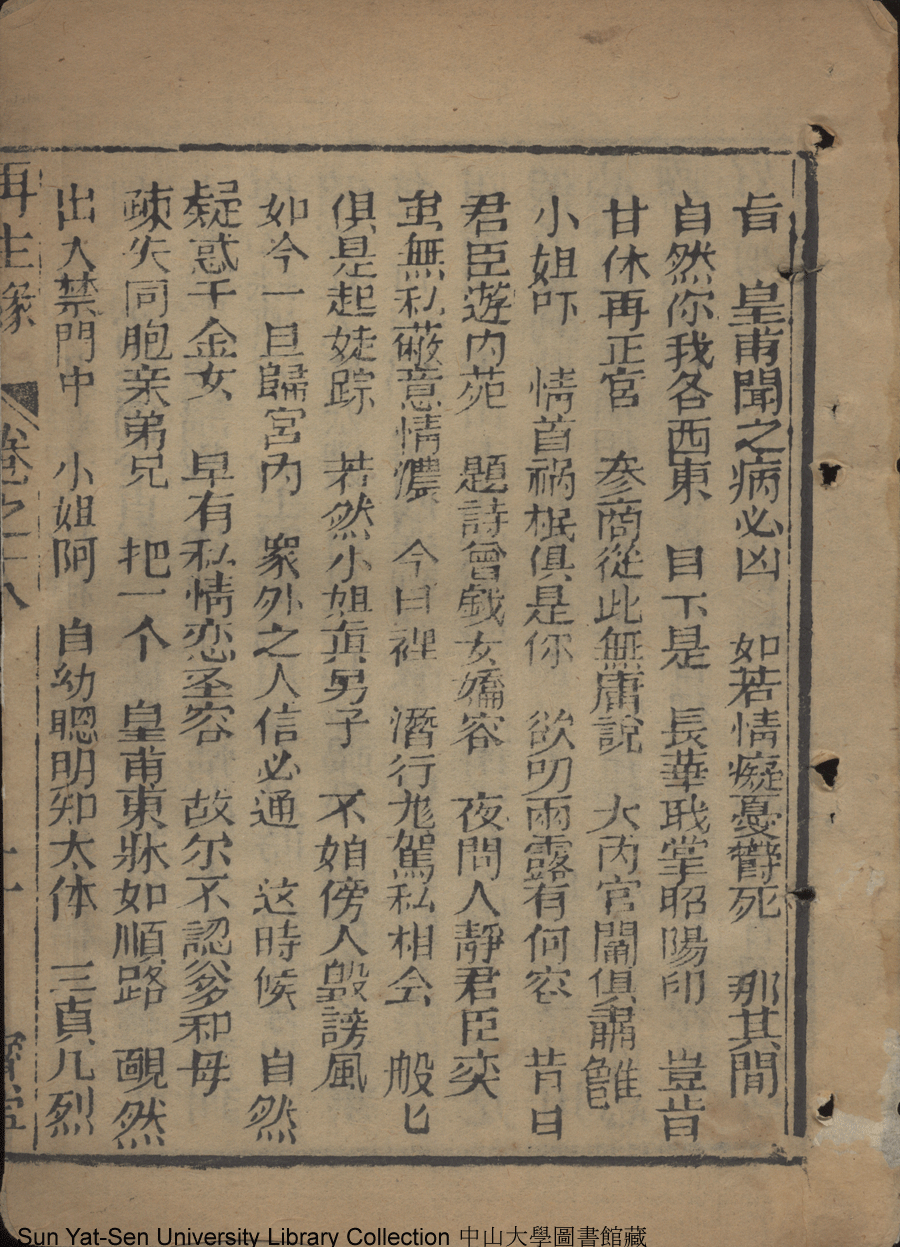 旨　皇甫聞之病必凶　如若情癡憂欝死　那其間
自然你我各西東　目下是　長華戢掌昭陽印　豈肯
甘休再正宮　參商從此無庸說　大內宮闈俱肅雝
小姐吓　情首禍根俱是你　欲叨雨露有何容　昔日
君臣遊內苑　題詩曾戯女嬌容　夜間人靜君臣奕
虽無私蔽意情濃　今日裡　潛行尨駕私相会　般匕
俱是起嫌踪　若然小姐真男子　不妨傍人毀謗風
如今一旦歸宮內　衆外之人信必通　这時候　自然
疑惑千金女　早有私情恋圣容　故尔不認爹和母
疎失同胞亲弟兄　把一个　皇甫東牀如順路　靦然
出入禁門中　小姐阿　自幼聰明知大体　三貞九烈
再生緣　卷之十八　十一　寶寧
Sun Yat-Sen University Library Collection 中山大學圖書館藏